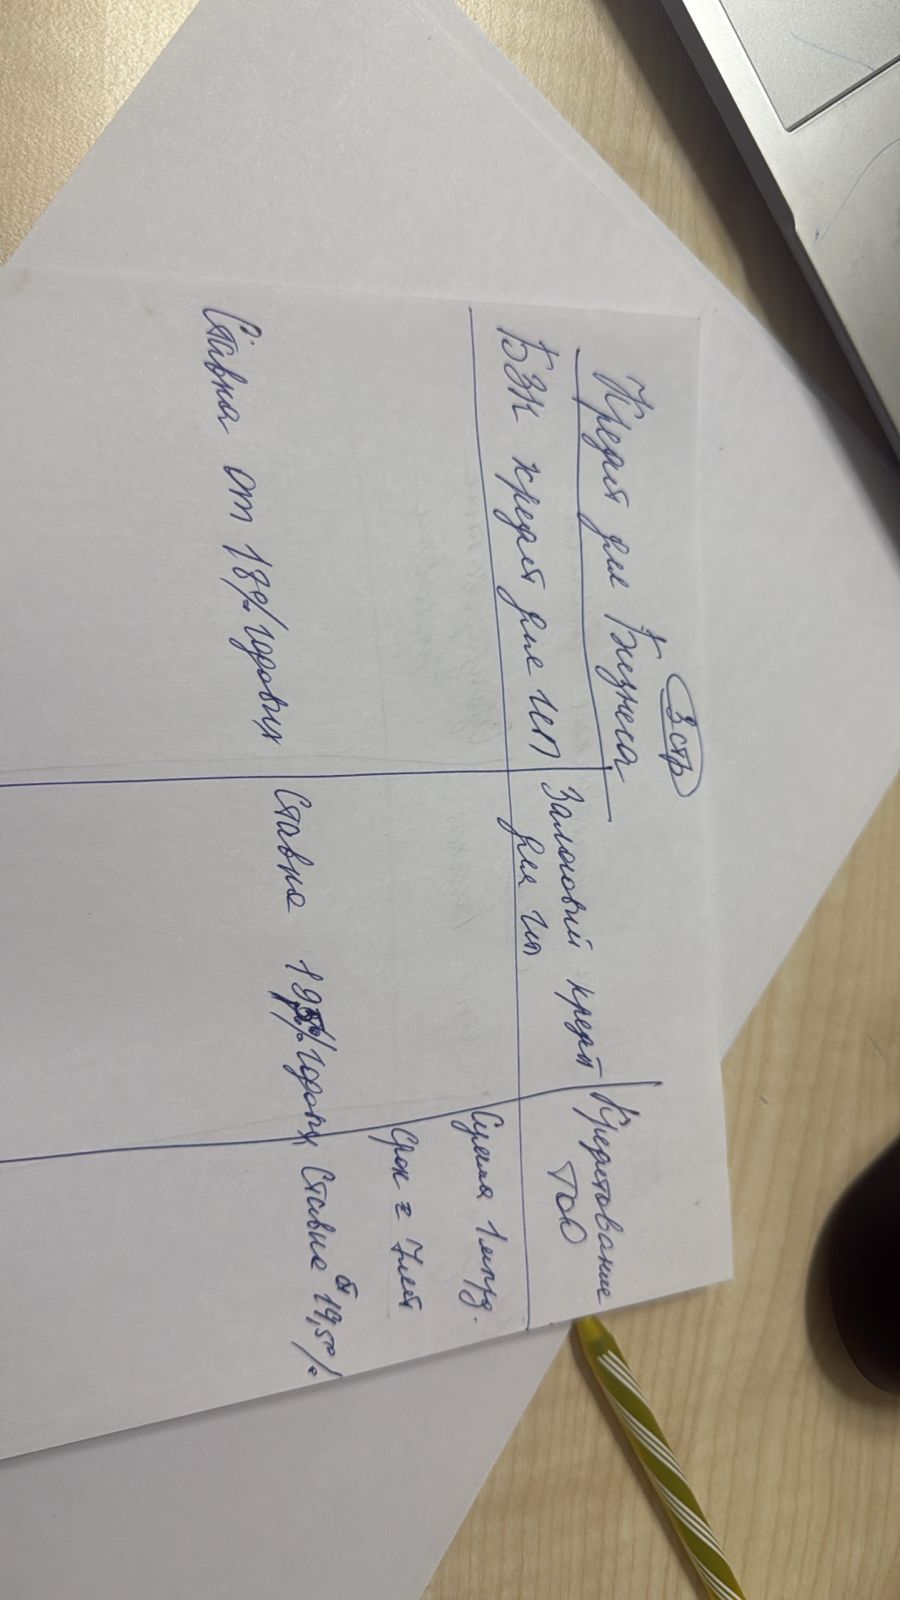 3 стр
Кредит для Бизнеса
БЗК кредит для ИП
Залоговый кредит
для ИП
Кредитование
ТОО
Сумма 1 млрд.
Срок = 7 лет
Ставка от 18% годовых
Ставка
годовых
Ставка от 19,5%